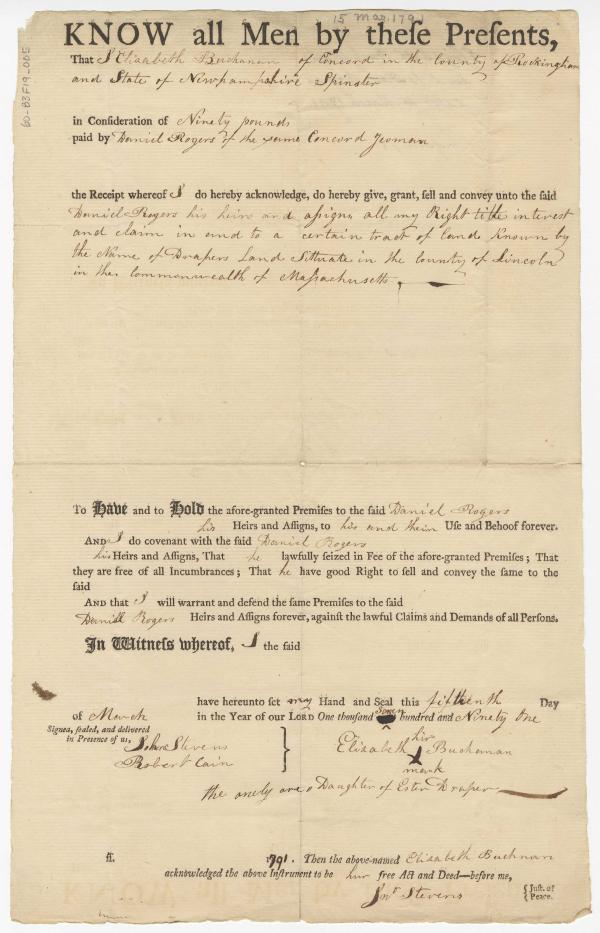 15 Mar 1791
60-B3F19_005
KNOW all Men by theſe Preſents,
That I Elizabeth Buchanan of Concord in the County of Rockingham
and State of Newhampshire Spinster
in Conſideration of Ninety pounds
paid by Daniel Rogers of the same Concord Yeoman
the Receipt whereof I do hereby acknowledge, do hereby give, grant, ſell and convey unto the ſaid
Daniel Rogers his heirs and aſsigns all my Right title interest
and claim in and to a certain tract of land Known by
the Name of Drapers Land Sittuate in the County of Lincoln
in the Commonwealth of Maſsachusetts
To Have and to Hold the afore-granted Premiſes to the ſaid Daniel Rogers
his Heirs and Aſſigns, to his and their Uſe and Behoof forever.
AND I do covenant with the ſaid Daniel Rogers
his Heirs and Aſſigns, That he lawfully ſeized in Fee of the afore-granted Premiſes; That
they are free of all Incumbrances; That he have good Right to ſell and convey the ſame to the
ſaid
And that I will warrant and defend the ſame Premiſes to the ſaid
Daniel Rogers Heirs and Aſſigns forever, againſt the lawful Claims and Demands of all Perſons.
In Witneſs whereof, I the ſaid
have hereunto ſet my Hand and Seal this fifteenth Day
of March in the Year of our LORD One thouſand Seven hundred and Ninety One
Signed, ſealed, and delivered
in Preſence of us,
John Stevens
Robert Cain
Elizabeth his Buchanan
mark
the onely Daughter of Ester Draper
ſſ. 1791. Then the above-named Elizabeth Buchnan
acknowledged the above Inſtrument to be hur free Act and Deed—before me,
Jnº Stevens { Juſt. of
Peace.